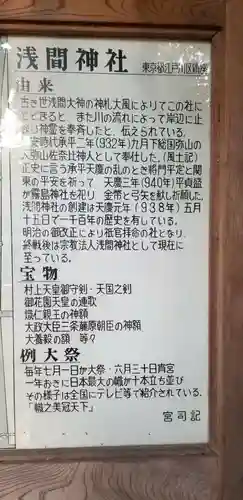 浅間神社
東京都江戸川区鎮座
由来
古き世浅間大神の神札大風によりてこの社に
とどまると また川の流れによって岸辺に止
り神霊を奉斉したと、伝えられている。
安時代承平二年(932)九月下総国弥山の
弥山佐奈辻神人として奉仕した。(風土記)
正史に言う承平天慶の乱のとき将門平定と関
東の平安を祈って 天慶三年(940)年平貞盛
が霧島神社を祀り 金幣と弓矢を献じ祈願した。
浅間神社の創建は天慶元年(938年)五月
十五日で一千百年の歴史を有している。
明治の御改正により祇官拝命の社となり、
終戦後は宗教法人浅間神社として現在に
至っている。
宝物
村上天皇御守剣・天国之剣
御花園天皇の連歌
熾仁親王の神額
太政大臣三條藤原朝臣の神額
犬養毅の額 等々
例大祭
毎年七月一日が大祭・六月三十日宵宮
一年おきに日本最大の幟が十本立ち並び
その様子は全国にテレビ等で紹介されている.
「幟之美冠天下」
宮司記